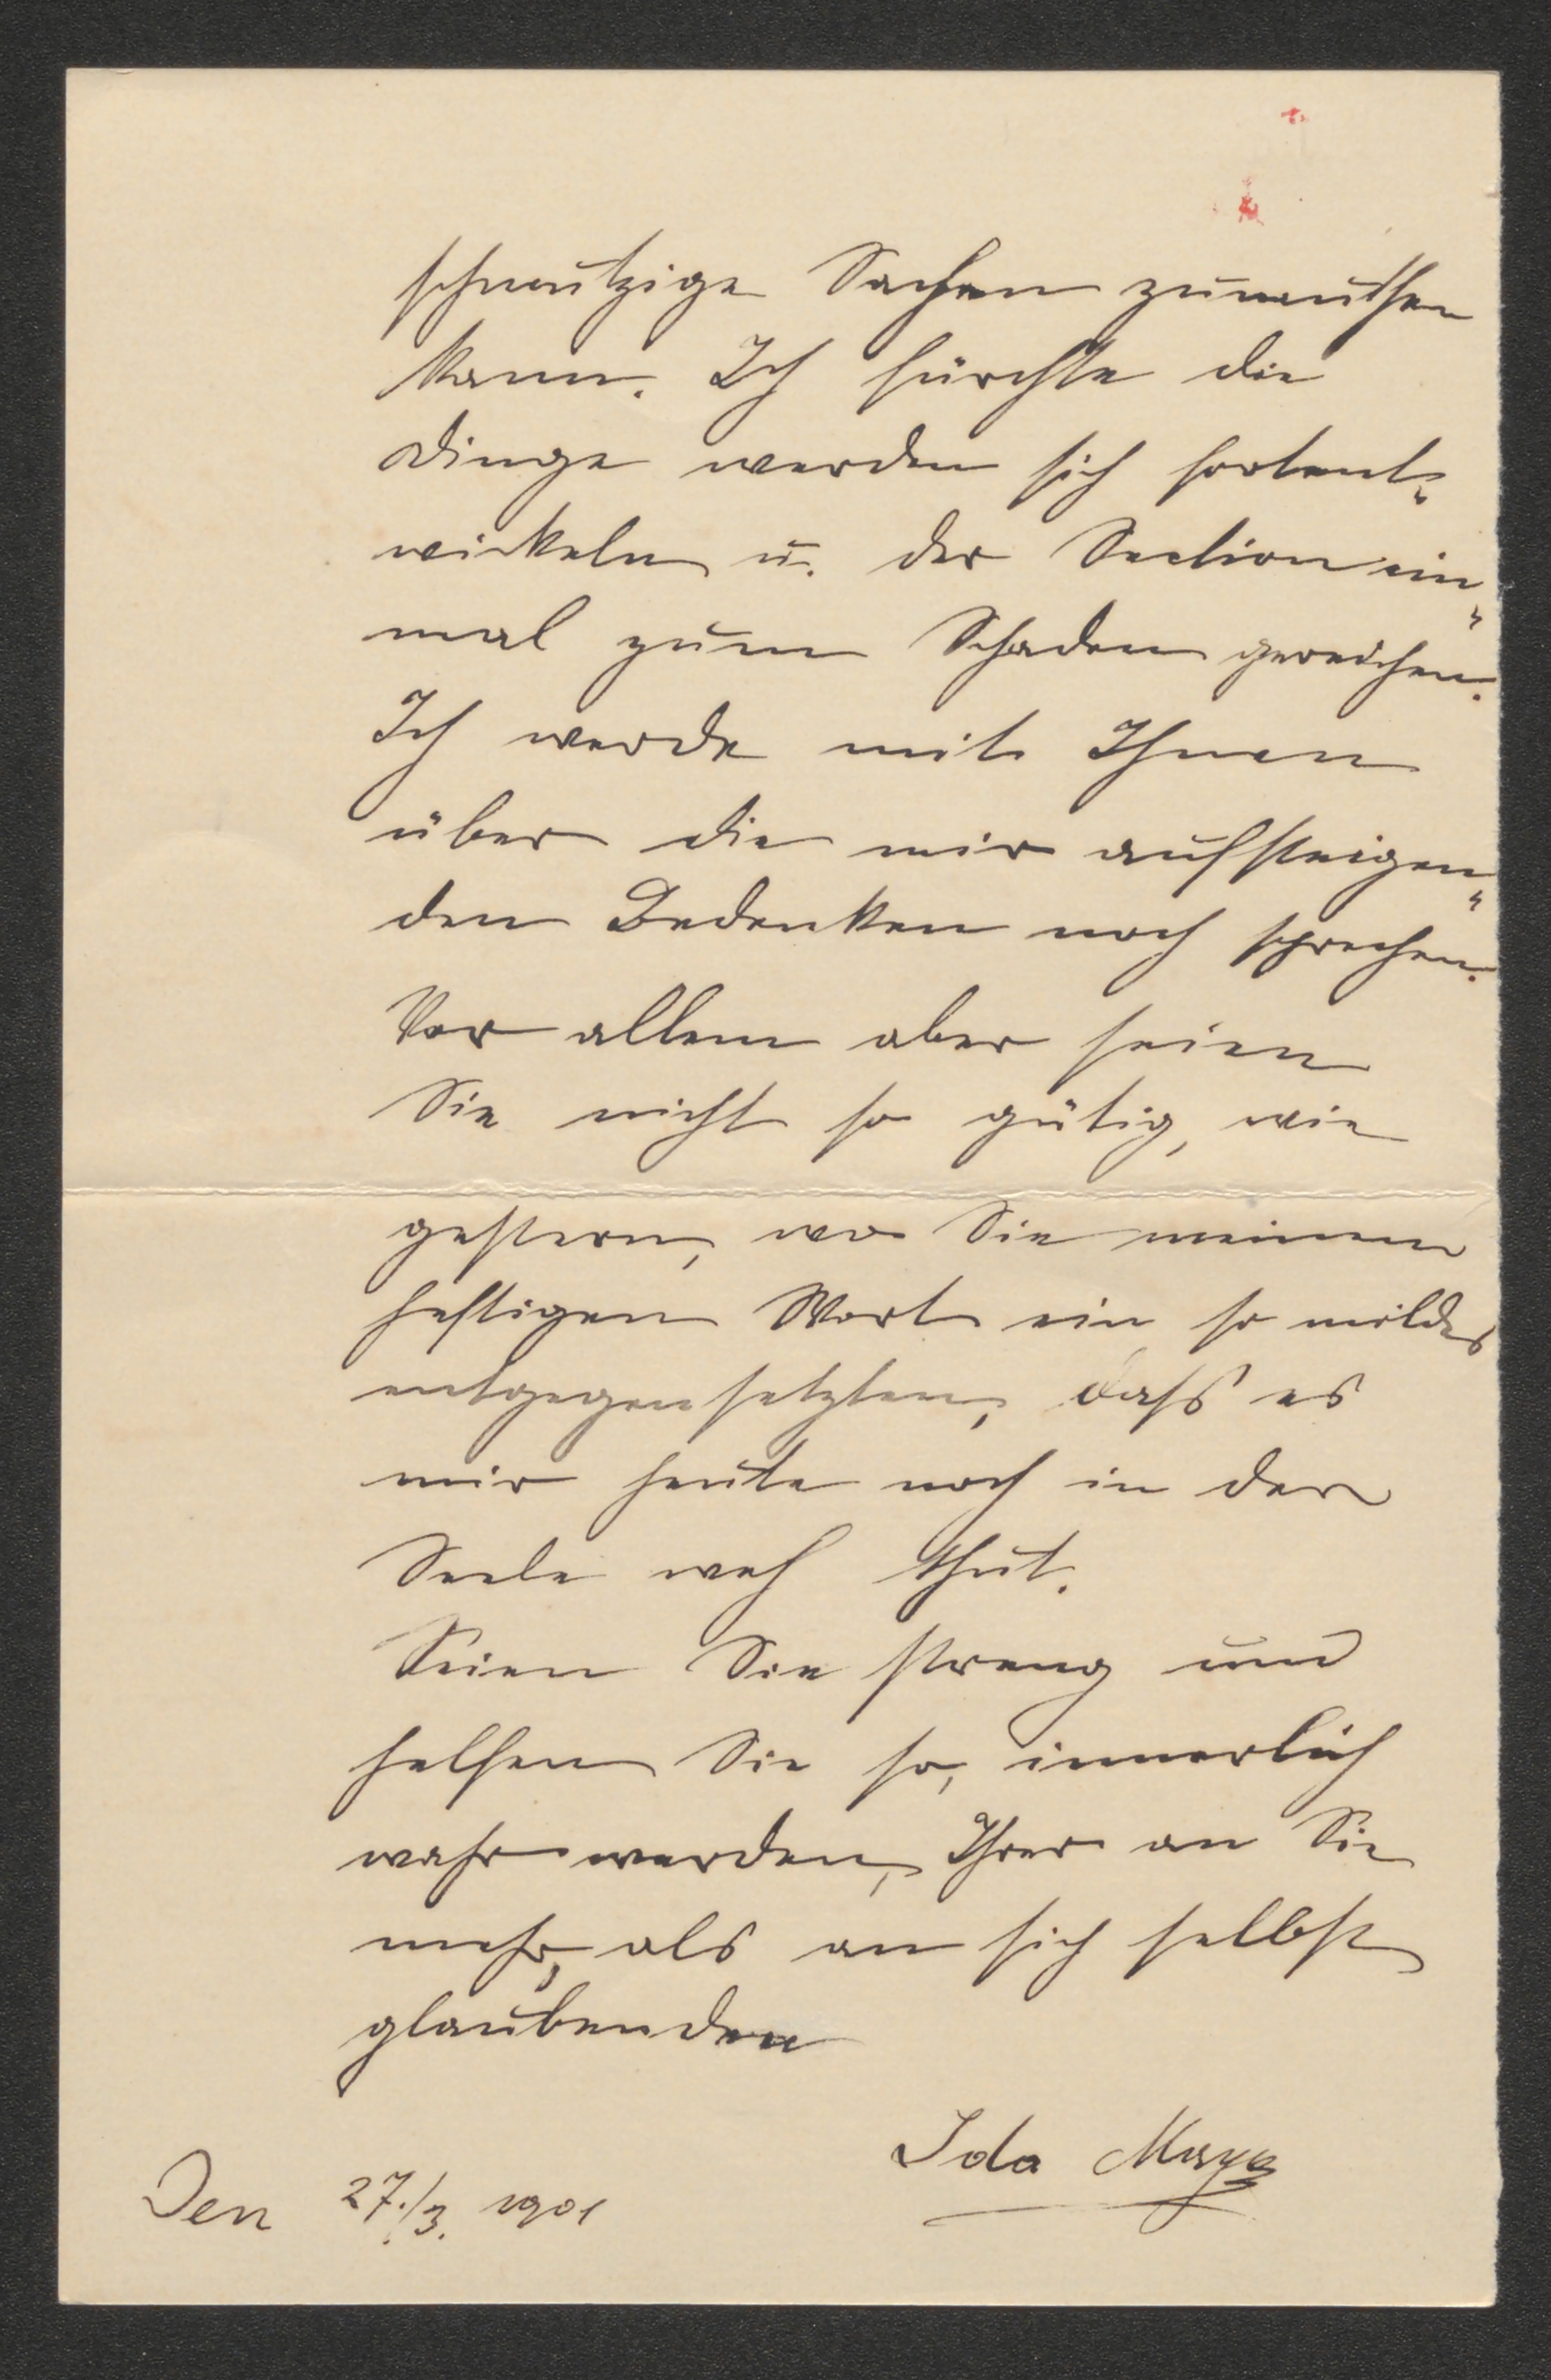 schmutzige Sachen zumuthen
kann. Ich fürchte die
Dinge werden sich fortent„
wickeln u. der Section ein„
mal zum Schaden gereichen.
Ich werde mit Ihnen
über die mir aufsteigen„
den Bedenken noch sprechen.
Vor allem aber seien
Sie nicht so gütig, wie
gestern, wo Sie meinem
heftigen Wort ein so mildes
entgegensetzten, dass es
mir heute noch in der
Seele weh thut.
Seien Sie streng und
helfen Sie so, innerlich
wahr werden, Ihrer an Sie
mehr, als an sich selbst
glaubenden
Ida
Den 27./3. 1901